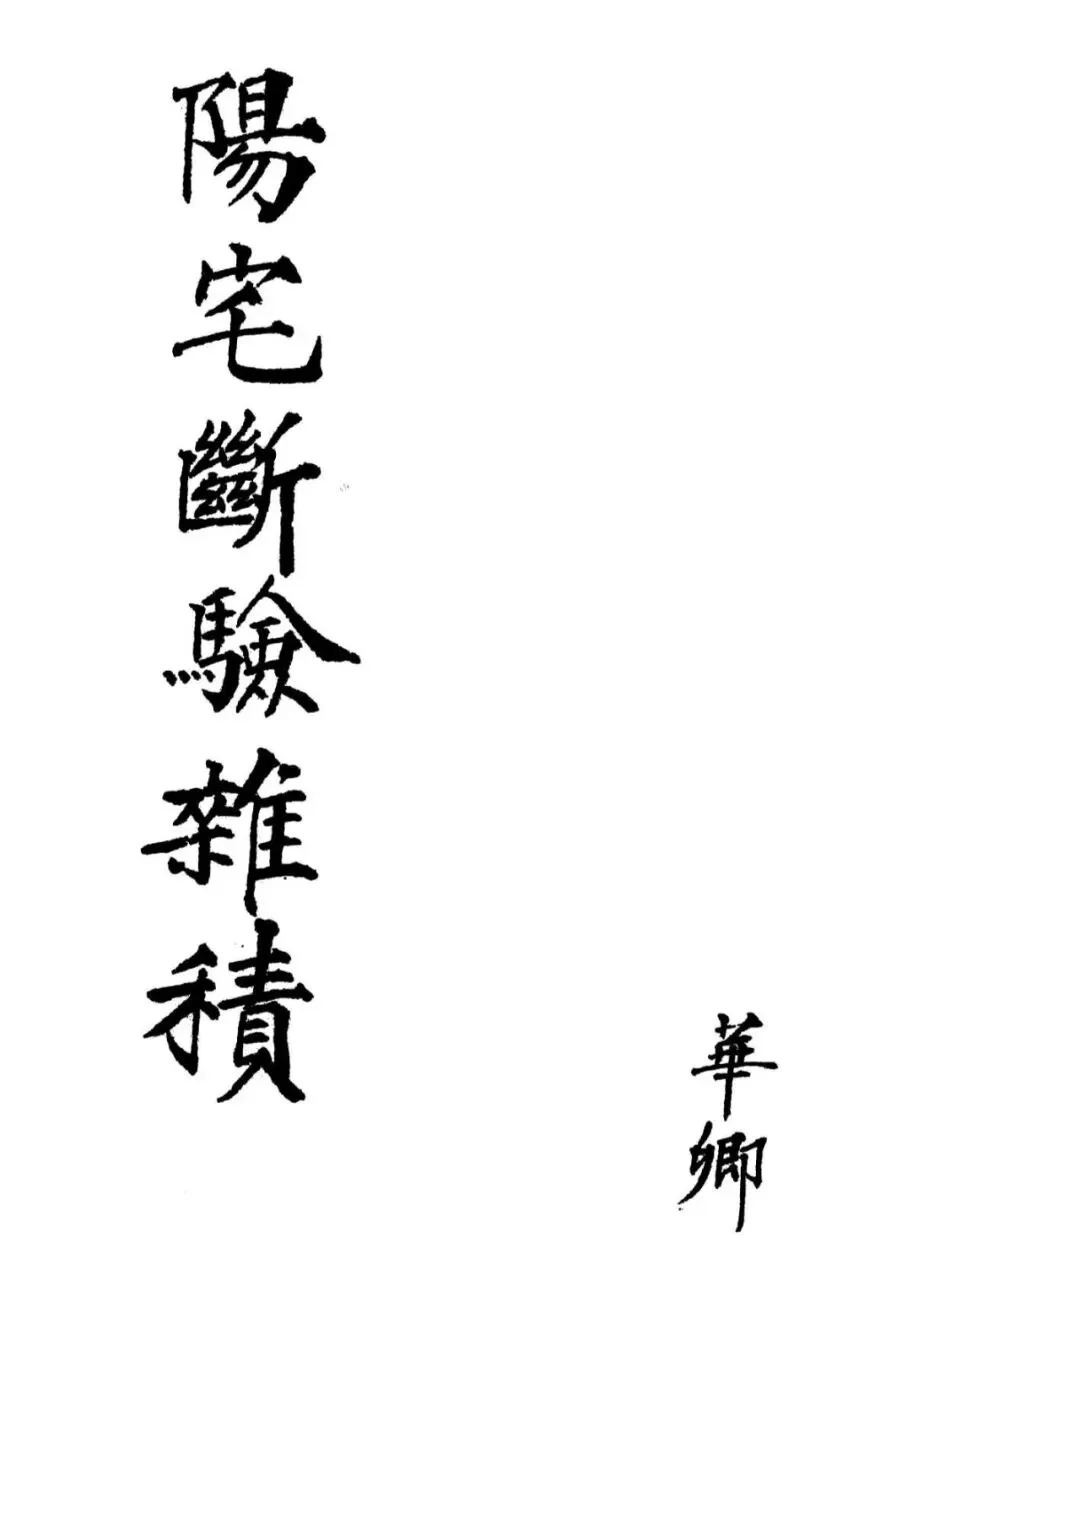 陽宅斷驗雜積
華卿